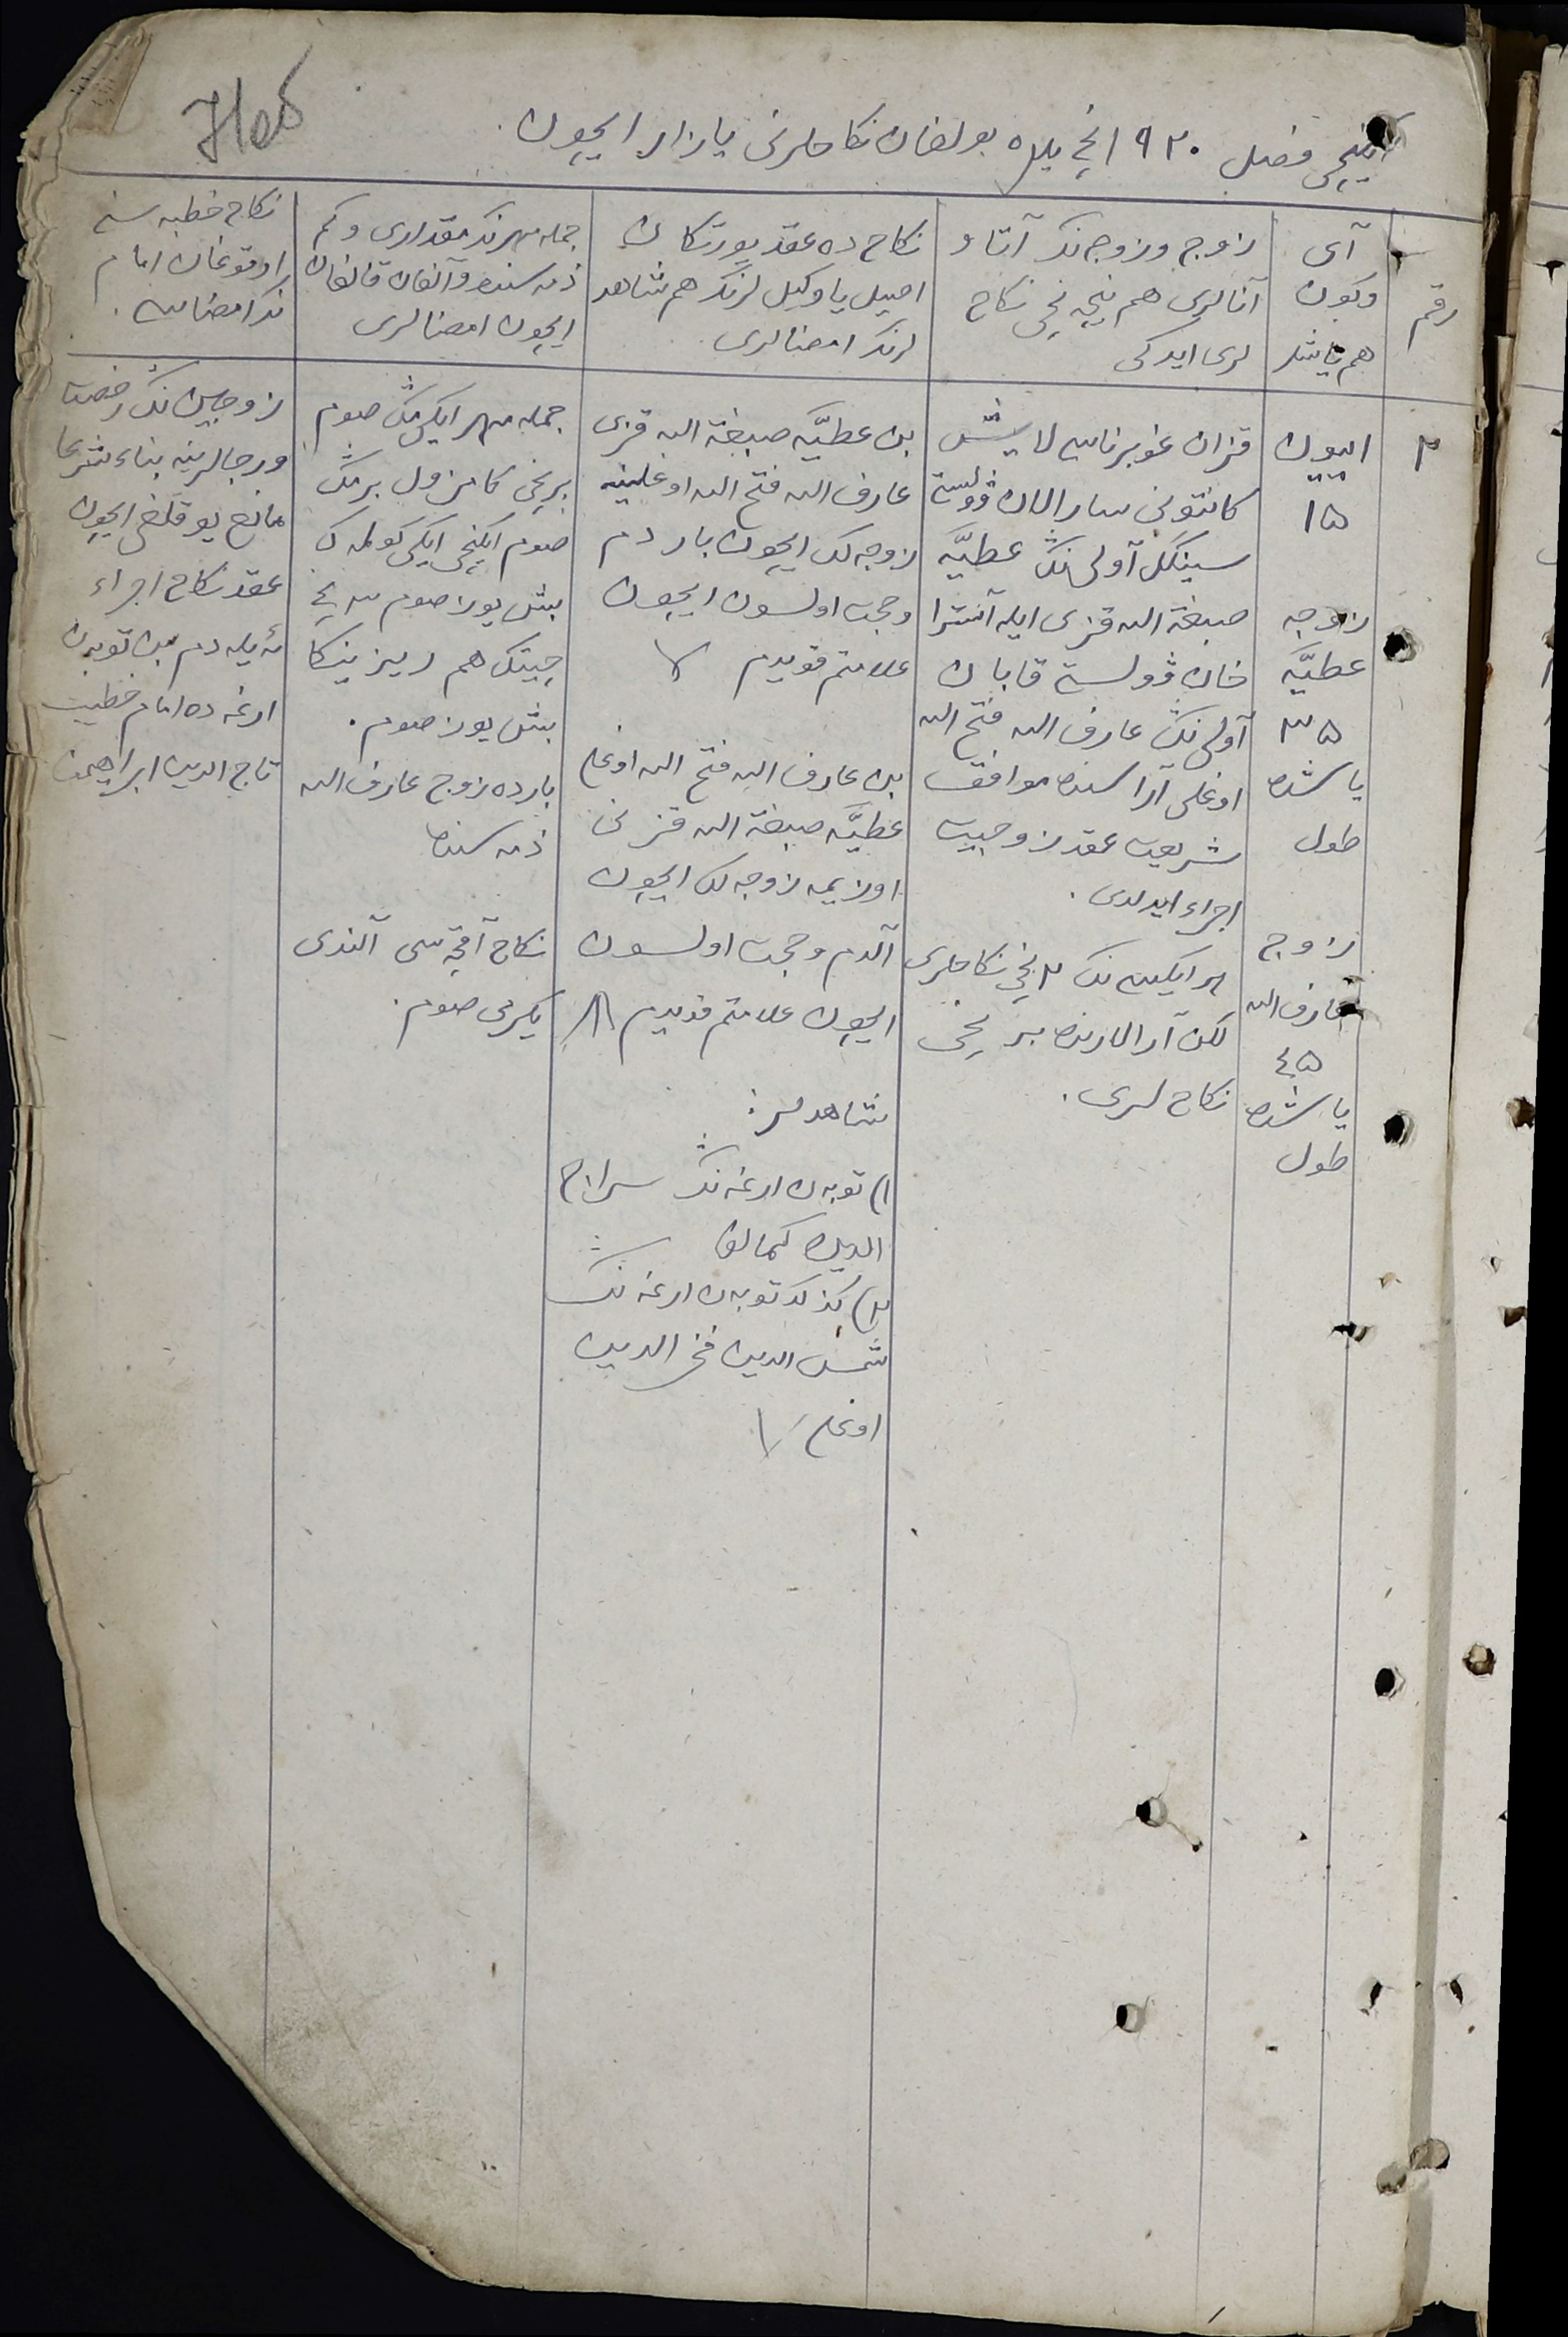 ايكنچی فصل ۹۲۰ ١نچی يلده بولغان نكاحلرنی يازار ايچون.
رقم
آی
وكون
هم ياشلر
زوج وزوجه نڭ آتا و
آنالری هم نيچه نچی نكاح
لری ايدكی
نكاح ده عقد يورتكان
اصيل يا وكيل لرنڭ هم شاهد
لرنڭ امضالری
جمله مهرنڭ مقداری وكم
ذمه سنده وآلغان قالغان
ايچون امضالری
نكاح خطبه سنی
اوقوغان امام
نڭ امضاسی.
٢
اييون
١٥
زوجه
عطيَّه
٣٥
ياشده
طول
زوج
عارف الله
٤٥
ياشده
طول
قزان غوبرناسی لايش
كانتونی سارالان ڤولستی
سينكل آولی نڭ عطيَّه
صبغة الله قزی ايله آنترا
خان ڤولستی قابان
آولی نڭ عارف الله فتح الله
اوغلی آراسنده موافق
شريعت عقد زوجيت
اجراء ايدلدی.
هر ايكسی نڭ ٢ نچی نكاحلری
لكن آرالارنده برنچی
نكاح لری.
بن عطيَّه صبغة الله قزی
عارف الله فتح الله اوغلينه
زوجه لك ايچون باردم
وحجت اولسون ايچون
علامتم قويدم
بن عارف الله فتح الله اوغلی
عطيَّه صبغة الله قزنی
اوزيمه زوجه لك ايچون
آلدم وحجت اولسون
ايچون علامتم قويدم
شاهدلر:
١) توبه ن اورغه نڭ سراج
الدين كمالوف
٢) توبه ن اورغه نڭ
شمس الدين فخر الدين
اوغلی
جمله مهر ايكی مڭ صوم
برنچی كامزول بر مڭ
صوم ايكنچی ايكی كولمه ك
بيش يوز صوم
چيتك هم ريزينكا
بيش يوز صوم.
بارده زوج عارف الله
ذمه سنده
نكاح آقچه سی آلندی
يكرمی صوم.
زوجين نڭ رضا
ورجالرينه بناء شرعا
مانع يوقلغی ايچون
عقد نكاح اجراء
ئه يله دم بن توبه ن
اورغه ده امام خطيب
تاج الدين ابراهيموف